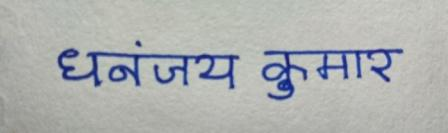 धनंजय कुमार